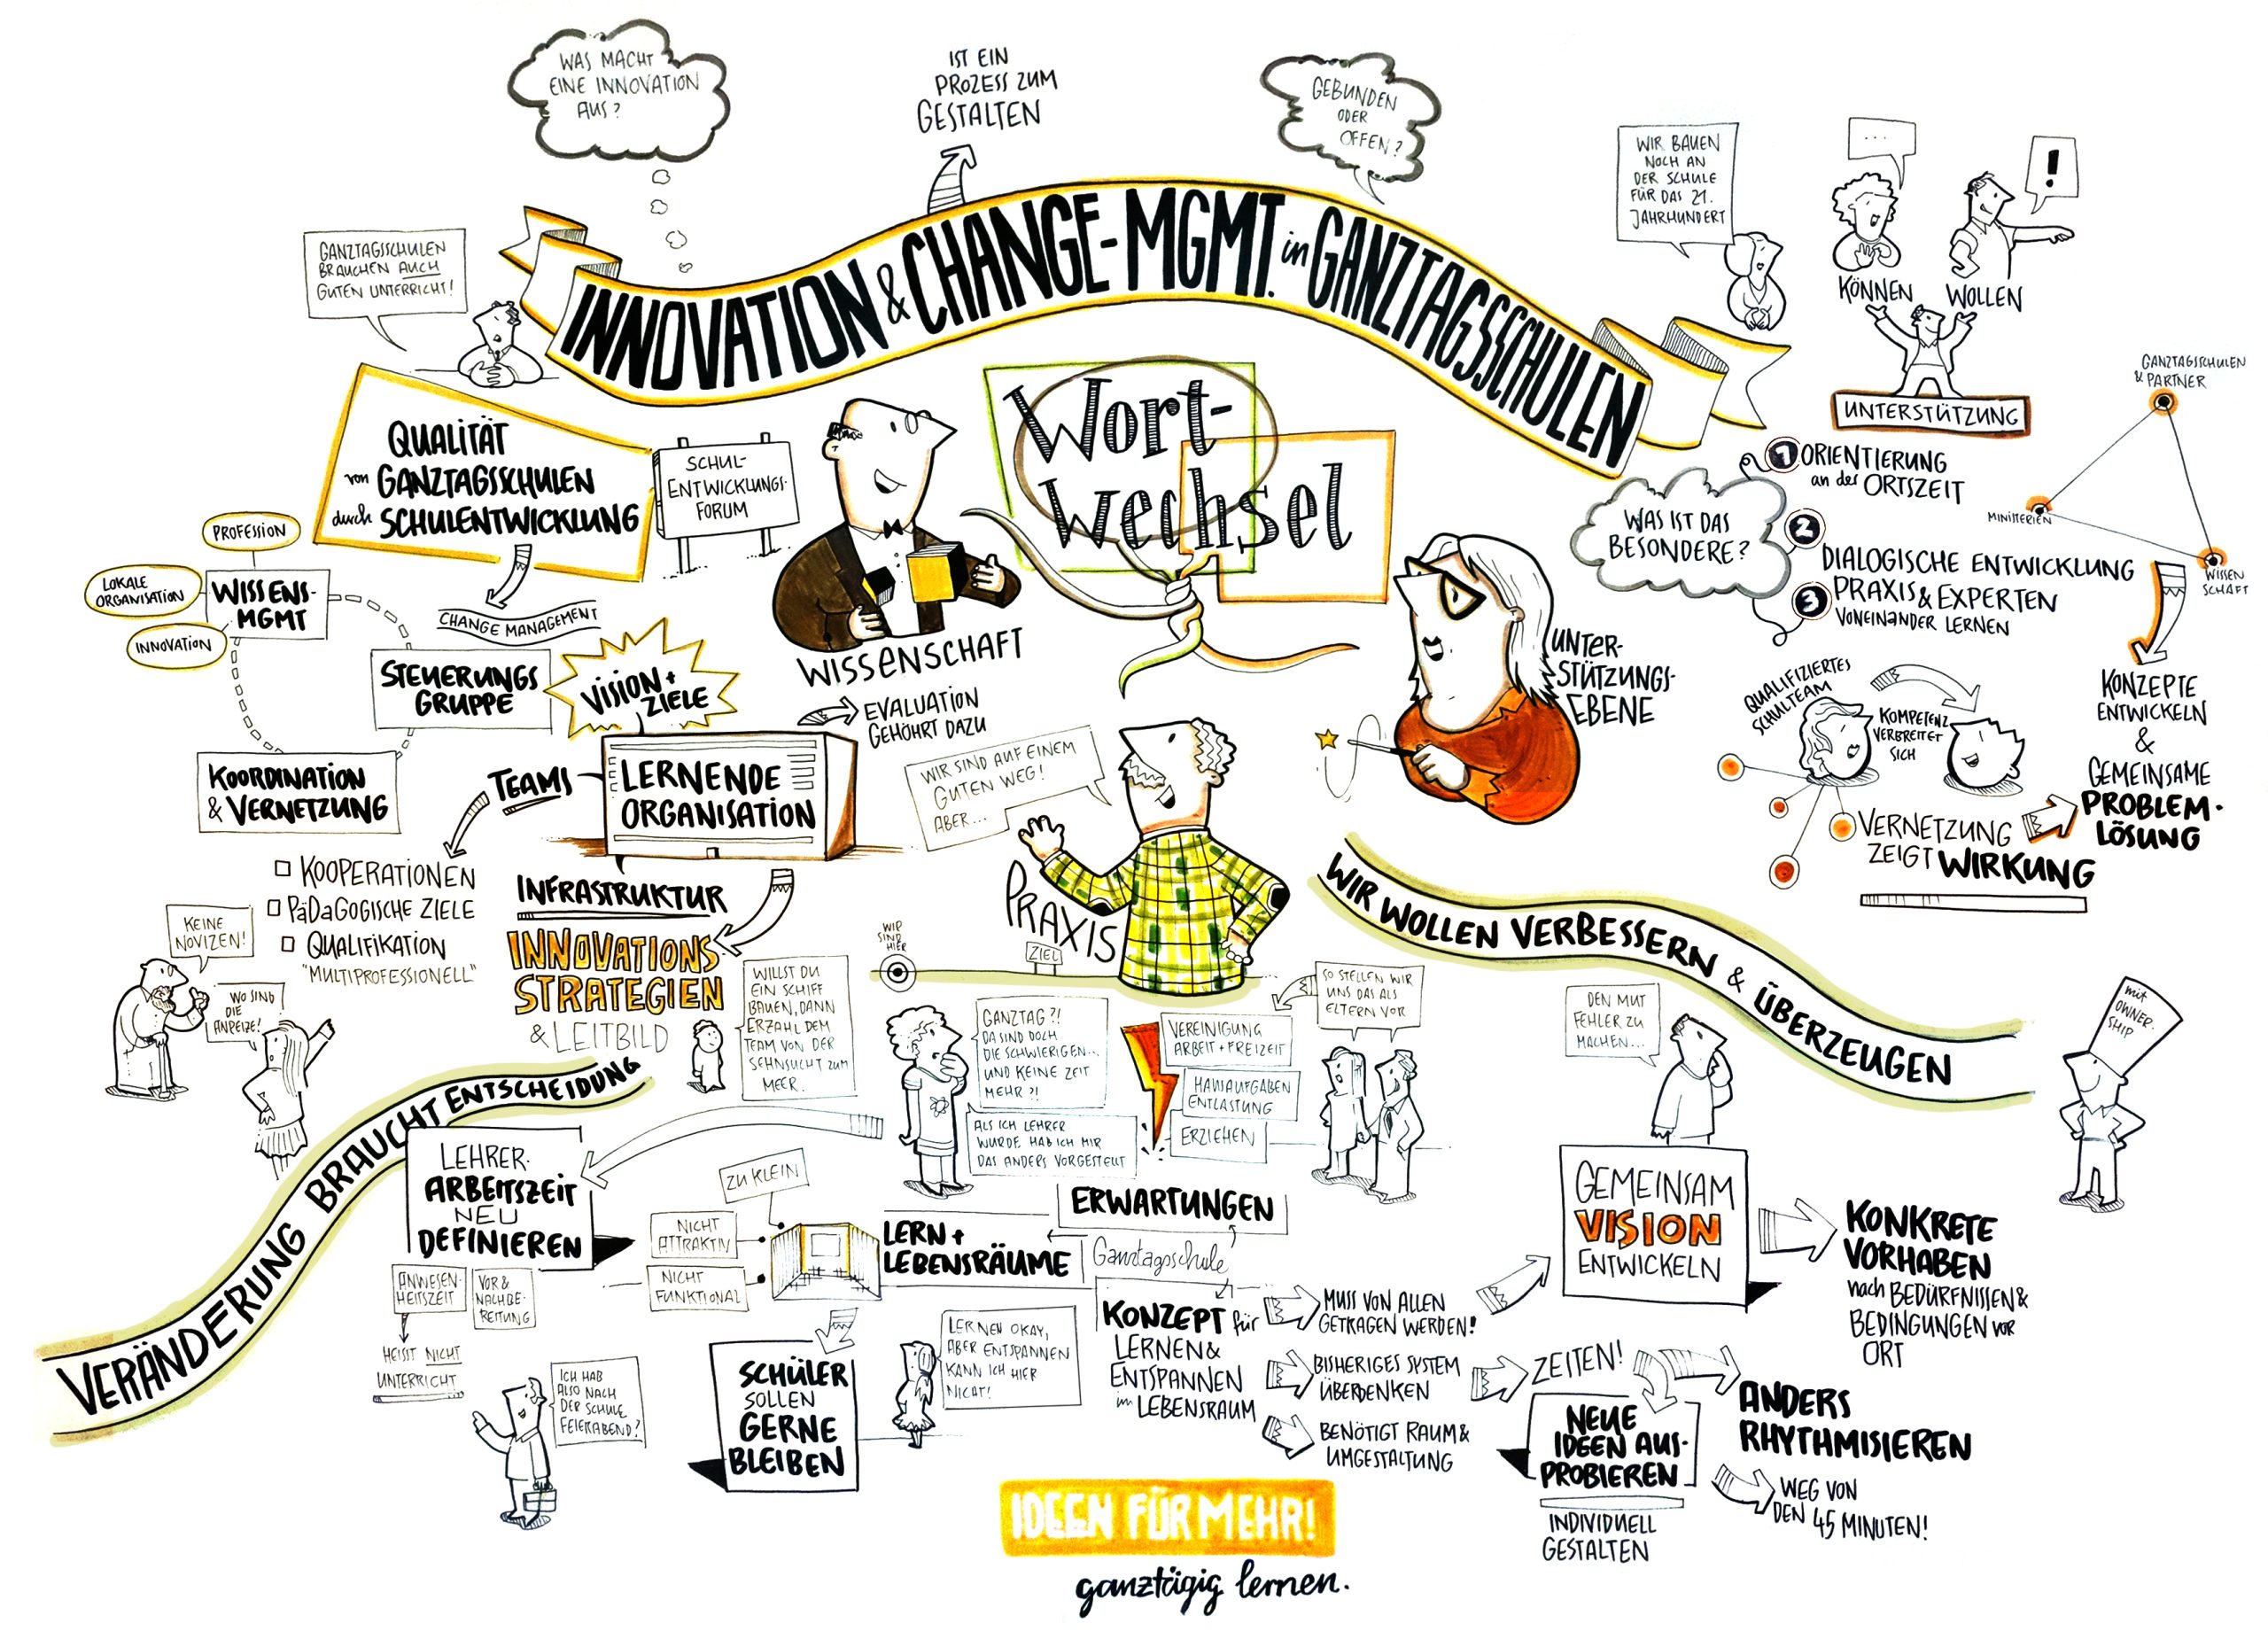 WAS MACHT
EINE INNOVATION
AUS?
IST EIN
PROZESS ZUM
GESTALTEN
GEBUNDEN
ODER
OFFEN?
INNOVATION & CHANGE-MGMT. in GANZTAGSSCHULEN
GANZTAGSSCHULEN
BRAUCHEN AUCH
GUTEN UNTERRICHT!
WIR BAUEN
NOCH AN
DER SCHULE
FÜR DAS 21.
JAHRHUNDERT
...
!
KÖNNEN
WOLLEN
UNTERSTÜTZUNG
QUALITÄT
von GANZTAGSSCHULEN
durch SCHULENTWICKLUNG
SCHUL-
ENTWICKLUNGS-
FORUM
CHANGE MANAGEMENT
PROFESSION
LOKALE
ORGANISATION
INNOVATION
WISSENS-
MGMT
STEUERUNGS
GRUPPE
VISION +
ZIELE
KOORDINATION
& VERNETZUNG
TEAMS
LERNENDE
ORGANISATION
KOOPERATIONEN
PÄDAGOGISCHE ZIELE
QUALIFIKATION
"MULTIPROFESSIONELL"
INFRASTRUKTUR
INNOVATIONS
STRATEGIEN
& LEITBILD
KEINE
NOVIZEN!
WO SIND
DIE
ANREIZE!
WILLST DU
EIN SCHIFF
BAUEN, DANN
ERZÄHL DEM
TEAM VON DER
SEHNSUCHT ZUM
MEER.
Wort-
wechsel
WISSENSCHAFT
EVALUATION
GEHÖHRT DAZU
UNTER-
STÜTZUNGS-
EBENE
WIR SIND AUF EINEM
GUTEN WEG!
ABER...
PRAXIS
WIR
SIND
HIER
ZIEL
WAS IST DAS
BESONDERE?
1 ORIENTIERUNG
an der ORTSZEIT
2
DIALOGISCHE ENTWICKLUNG
3 PRAXIS & EXPERTEN
VONEINANDER LERNEN
GANZTAGSSCHULEN
& PARTNER
MINISTERIEN
WISSEN
SCHAFT
KONZEPTE
ENTWICKELN
&
GEMEINSAME
PROBLEM-
LÖSUNG
QUALIFIZIERTES
SCHULTEAM
KOMPETENZ
VERBREITET
SICH
VERNETZUNG
ZEIGT WIRKUNG
WIR WOLLEN VERBESSERN & ÜBERZEUGEN
mit
OWNER-
SHIP
VERÄNDERUNG BRAUCHT ENTSCHEIDUNG
LEHRER-
ARBEITSZEIT
NEU
DEFINIEREN
ANWESEN-
HEITSZEIT
VOR &
NACHBE-
REITUNG
HEISST NICHT
UNTERRICHT
ICH HAB
ALSO NACH
DER SCHULE
FEIERABEND?
GANZTAG?!
DA SIND DOCH
DIE SCHWIERIGEN...
UND KEINE ZEIT
MEHR?!
ALS ICH LEHRER
WURDE HAB ICH MIR
DAS ANDERS VORGESTELLT
SO STELLEN WIR
UNS DAS ALS
ELTERN VOR
VEREINIGUNG
ARBEIT + FREIZEIT
HAUSAUFGABEN
ENTLASTUNG
ERZIEHEN
ERWARTUNGEN
Ganztagsschule
ZU KLEIN
NICHT
ATTRAKTIV
NICHT
FUNKTIONAL
LERN +
LEBENSRÄUME
SCHÜLER
SOLLEN
GERNE
BLEIBEN
LERNEN OKAY,
ABER ENTSPANNEN
KANN ICH HIER
NICHT!
KONZEPT für
LERNEN &
ENTSPANNEN
im LEBENSRAUM
MUSS VON ALLEN
GETRAGEN WERDEN!
BISHERIGES SYSTEM
ÜBERDENKEN
BENÖTIGT RAUM &
UMGESTALTUNG
DEN MUT
FEHLER ZU
MACHEN...
GEMEINSAM
VISION
ENTWICKELN
KONKRETE
VORHABEN
nach BEDÜRFNISSEN &
BEDINGUNGEN VOR
ORT
ZEITEN!
NEUE
IDEEN AUS-
PROBIEREN
INDIVIDUELL
GESTALTEN
ANDERS
RHYTHMISIEREN
WEG VON
DEN 45 MINUTEN!
IDEEN FÜR MEHR!
ganztägig lernen.